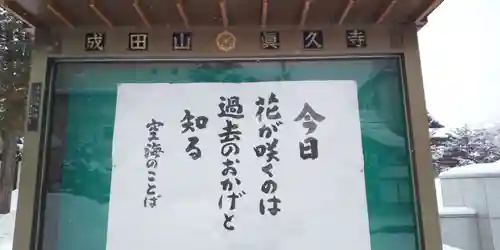 成田山 眞久寺
今日
花が咲くのは
過去のおかげと
知る
空海のことば